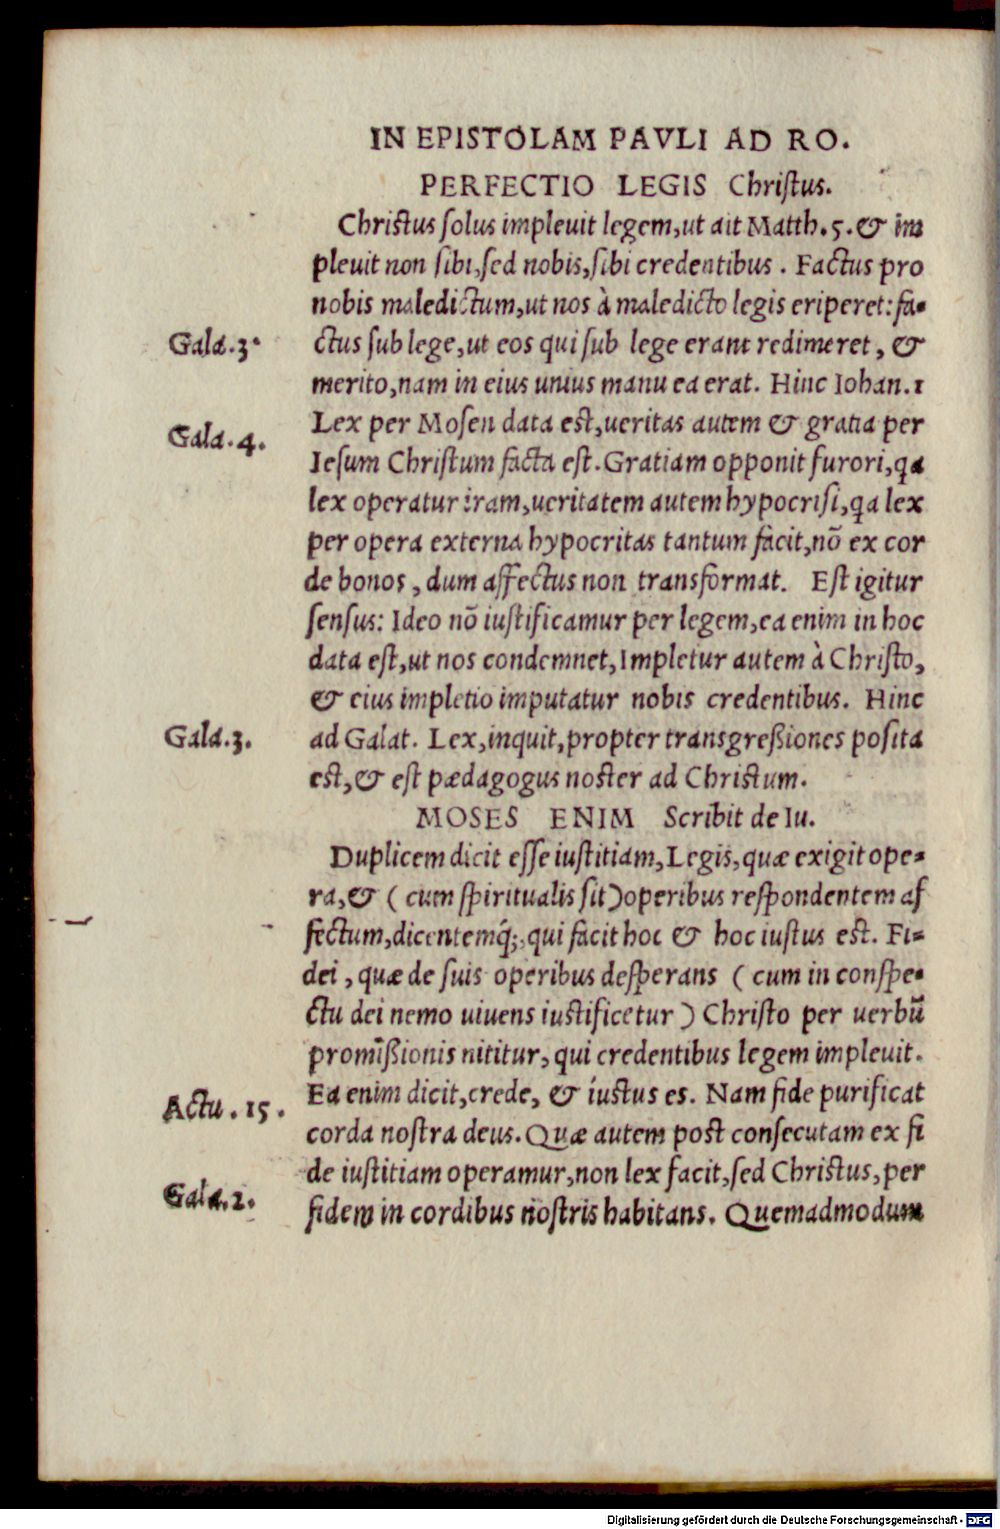 IN EPISTOLAM PAVLI AD RO.
PERFECTIO LEGIS Christus.
Christus solus impleuit legem,ut ait Matth.5.& im
pleuit non sibi,sed nobis,sibi credentibus. Factus pro
nobis maledictum,ut nos à maledicto legis eriperet:fa-
Gala.3.
ctus sub lege,ut eos qui sub lege erant redimeret, &
merito,nam in eius unius manu ea erat. Hinc Iohan.1
Gala.4.
Lex per Mosen data est,ueritas autem & gratia per
Iesum Christum facta est.Gratiam opponit furori,qa
lex operatur iram,ueritatem autem hypocrisi,qa lex
per opera externa hypocritas tantum facit,nō ex cor
de bonos, dum affectus non transformat. Est igitur
sensus: Ideo nō iustificamur per legem,ea enim in hoc
data est,ut nos condemnet,Impletur autem à Christo,
& eius impletio imputatur nobis credentibus. Hinc
Gala.3.
ad Galat. Lex,inquit,propter transgreßiones posita
est,& est pædagogus noster ad Christum.
MOSES ENIM Scribit de Iu.
Duplicem dicit esse iustitiam,Legis,quæ exigit ope-
ra,& (cum spiritualis sit)operibus respondentem af
fectum,dicentemq́;,qui facit hoc & hoc iustus est. Fi-
dei, quæ de suis operibus desperans (cum in conspe-
ctu dei nemo uiuens iustificetur) Christo per uerbū
promißionis nititur, qui credentibus legem impleuit.
Actu.15.
Ea enim dicit,crede, & iustus es. Nam fide purificat
corda nostra deus. Quæ autem post consecutam ex fi
de iustitiam operamur,non lex facit,sed Christus,per
Gala.2.
fidem in cordibus nostris habitans. Quemadmodum
Digitalisierung gefördert durch die Deutsche Forschungsgemeinschaft - DFG